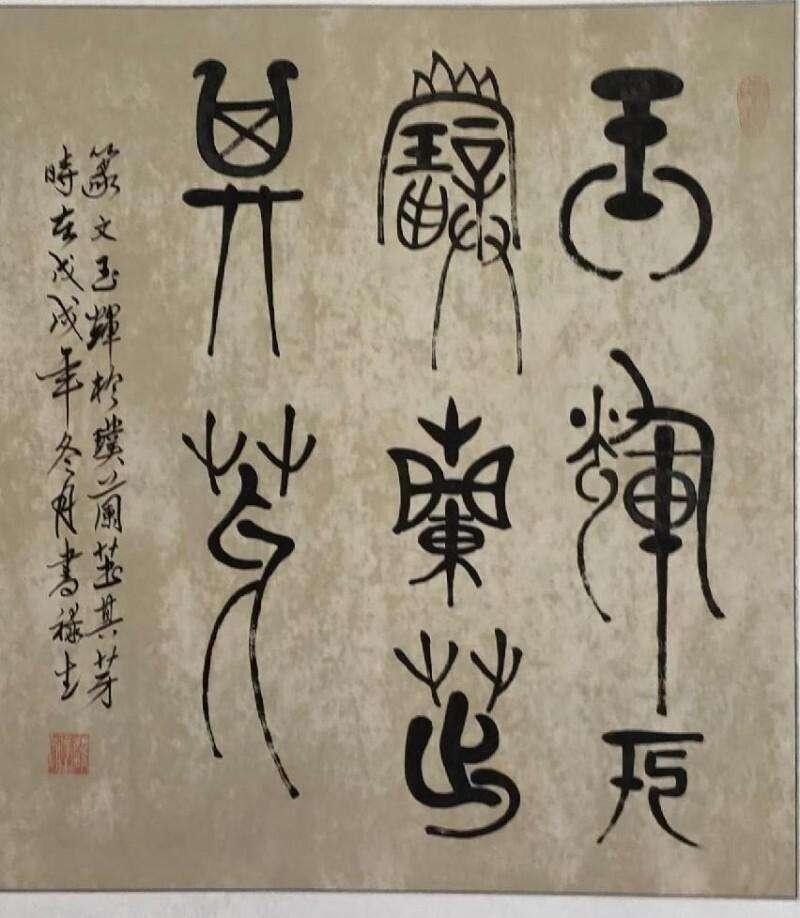 玉輝于
璞蘭茁
其芽
篆文玉輝於璞蘭茁其芽
時在戊戌年冬月書祿生